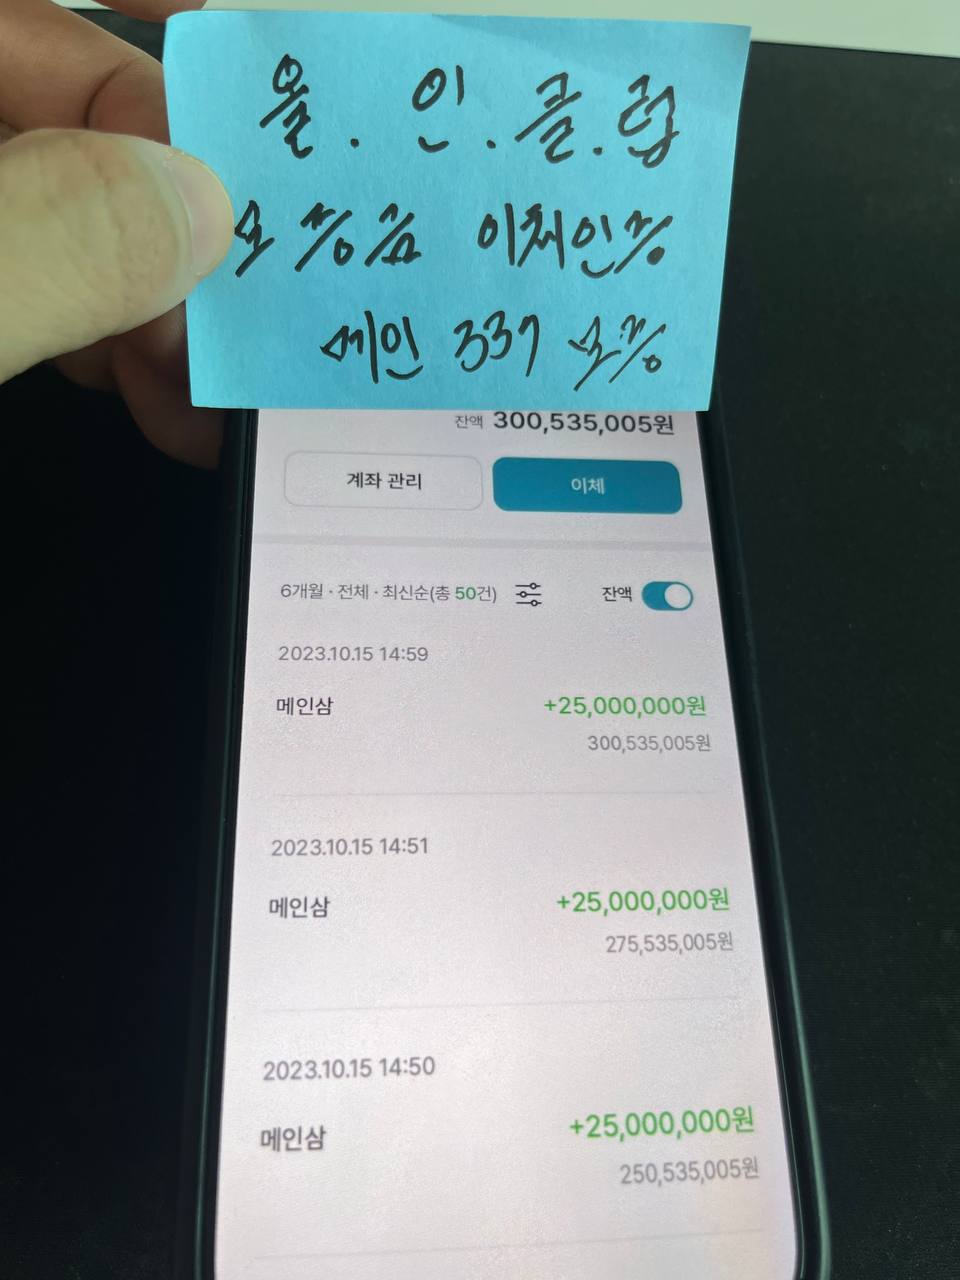 올.인.클.럽
보증금 이체인증
메인 337 보증
잔액 300,535,005원
계좌 관리 이체
6개월 · 전체 · 최신순(총 50건) 잔액
2023.10.15 14:59
메인삼 +25,000,000원
300,535,005원
2023.10.15 14:51
메인삼 +25,000,000원
275,535,005원
2023.10.15 14:50
메인삼 +25,000,000원
250,535,005원